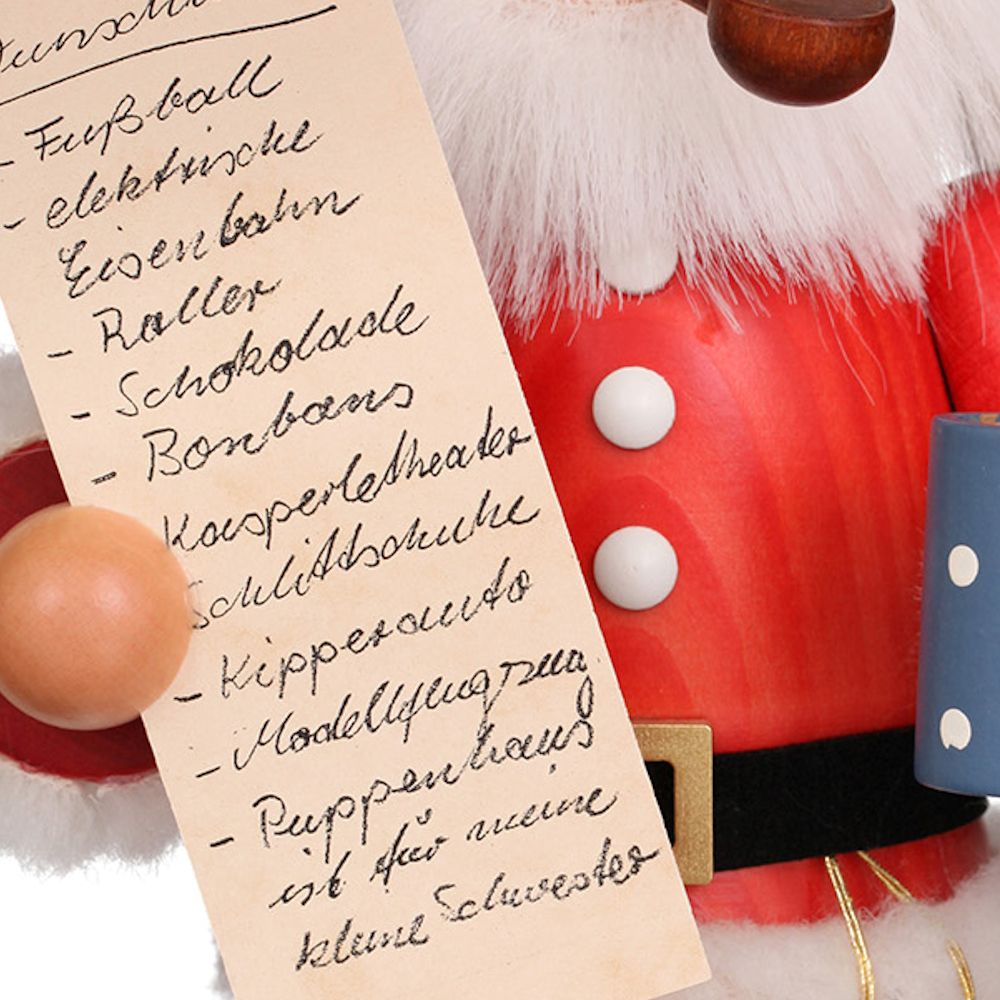 - Fußball
- elektrische
Eisenbahn
- Roller
- Schokolade
- Bonbons
Kasperletheater
Schlittschuhe
- Kipperauto
- Modellflugzeug
- Puppenhaus
ist für meine
kleine Schwester